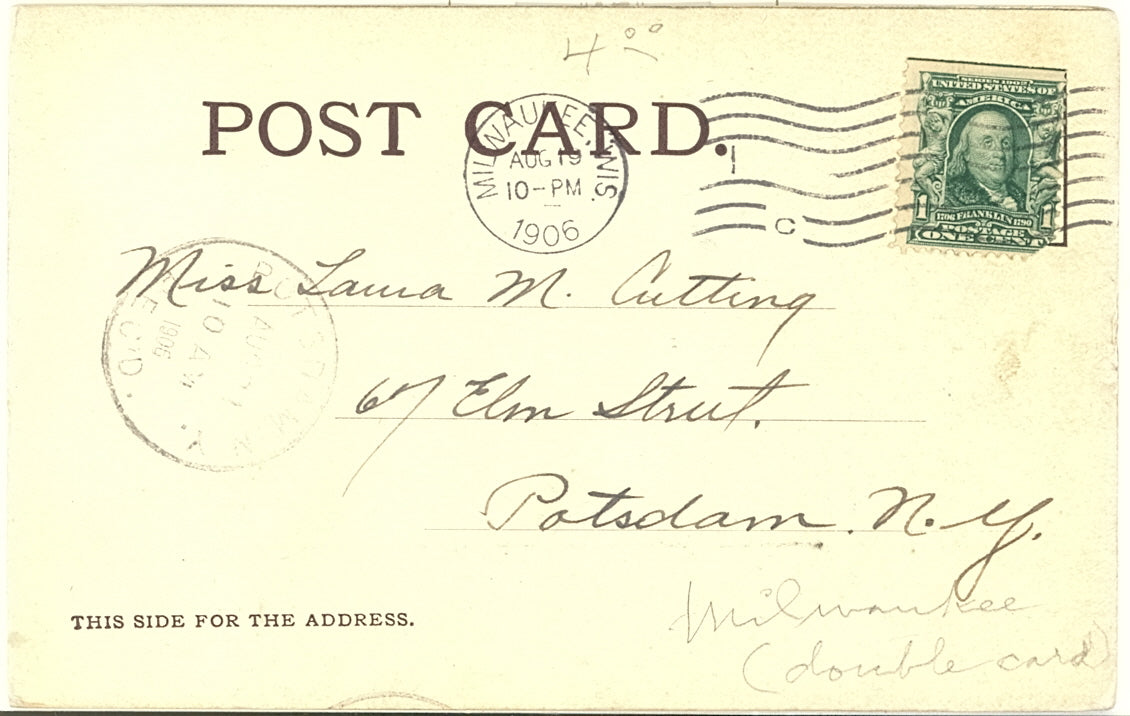 4⁰⁰
POST CARD.
MILWAUKEE, WIS.
AUG 19
10-PM
1906
1
C
SERIES 1902
UNITED STATES OF
AMERICA
1 1
1706 FRANKLIN 1790
POSTAGE
ONE CENT
Miss Laura M. Cutting
67 Elm Street.
Potsdam. N. Y.
POTSDAM N.Y.
AUG
10 AM
1906
REC'D.
THIS SIDE FOR THE ADDRESS.
Milwaukee
(double card)